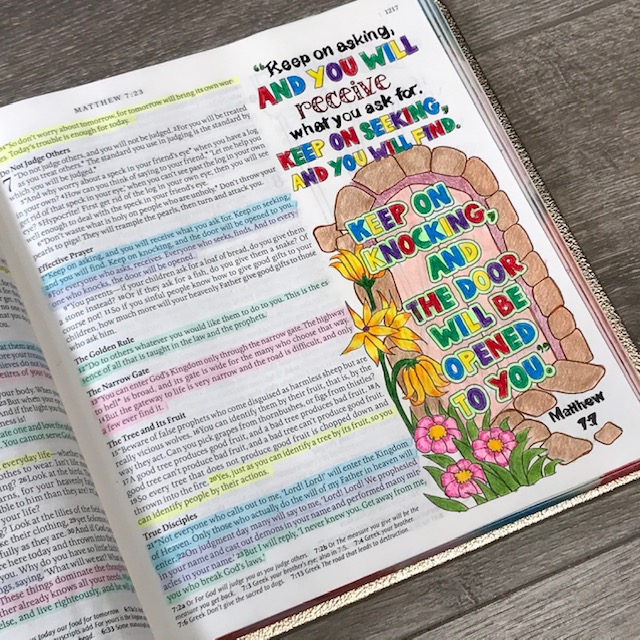 1217
MATTHEW 7:23
"Keep on asking,
AND YOU WILL
receive
what you ask for.
KEEP ON SEEKING,
AND YOU WILL FIND.
KEEP ON
KNOCKING,
AND
THE DOOR
WILL BE
OPENED
TO YOU."
Matthew
7:7
34"So don't worry about tomorrow, for tomorrow will bring its own wor-
Today's trouble is enough for today.
Do Not Judge Others
7
"Do not judge others, and you will not be judged. 2For you will be treated
as you treat others.* The standard you use in judging is the standard by
which you will be judged.*
3"And why worry about a speck in your friend's eye* when you have a log
in your own? 4How can you think of saying to your friend,* 'Let me help you
get rid of that speck in your eye,' when you can't see past the log in your own
eye? 5Hypocrite! First get rid of the log in your own eye; then you will see
well enough to deal with the speck in your friend's eye.
6"Don't waste what is holy on people who are unholy.* Don't throw your
pearls to pigs! They will trample the pearls, then turn and attack you.
Effective Prayer
7"Keep on asking, and you will receive what you ask for. Keep on seeking,
and you will find. Keep on knocking, and the door will be opened to you.
8For everyone who asks, receives. Everyone who seeks, finds. And to every-
one who knocks, the door will be opened.
9"You parents—if your children ask for a loaf of bread, do you give them
a stone instead? 10Or if they ask for a fish, do you give them a snake? Of
course not! 11So if you sinful people know how to give good gifts to your
children, how much more will your heavenly Father give good gifts to those
who ask him.
The Golden Rule
12"Do to others whatever you would like them to do to you. This is the es-
sence of all that is taught in the law and the prophets.
The Narrow Gate
13"You can enter God's Kingdom only through the narrow gate. The highway
to hell* is broad, and its gate is wide for the many who choose that way.
14But the gateway to life is very narrow and the road is difficult, and only
a few ever find it.
The Tree and Its Fruit
15"Beware of false prophets who come disguised as harmless sheep but are
really vicious wolves. 16You can identify them by their fruit, that is, by the
way they act. Can you pick grapes from thornbushes, or figs from thistles?
17A good tree produces good fruit, and a bad tree produces bad fruit. 18A
good tree can't produce bad fruit, and a bad tree can't produce good fruit.
19So every tree that does not produce good fruit is chopped down and
thrown into the fire. 20Yes, just as you can identify a tree by its fruit, so you
can identify people by their actions.
True Disciples
21"Not everyone who calls out to me, 'Lord! Lord!' will enter the Kingdom
of Heaven. Only those who actually do the will of my Father in heaven will
enter. 22On judgment day many will say to me, 'Lord! Lord! We prophesied
in your name and cast out demons in your name and performed many mir-
acles in your name.' 23But I will reply, 'I never knew you. Get away from me,
you who break God's laws.'
7:2a Or For God will judge you as you judge others. 7:2b Or The measure you give will be the
measure you get back. 7:3 Greek your brother's eye; also in 7:5. 7:4 Greek your brother.
7:6 Greek Don't give the sacred to dogs. 7:13 Greek The road that leads to destruction.